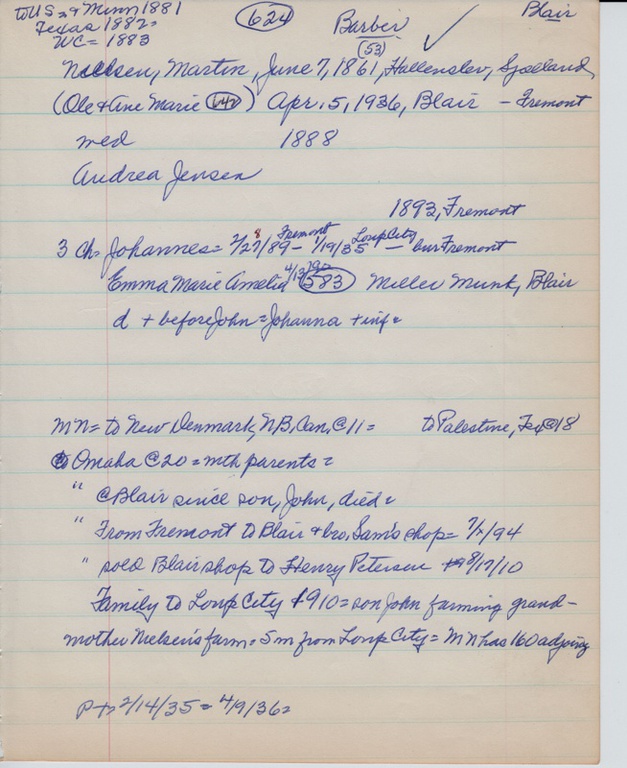 to US = + Minn 1881
Texas 1882=
WC = 1883
624
Barber
(53)
Blair
Nielsen, Martin, June 7, 1861, Hallenslev, Sjaelland
(Ole + Ane Marie 642) Apr. 5, 1936, Blair - Fremont
wed 1888
Andrea Jensen
1893, Fremont
3 ch= Johannes= 2/27/89 - Fremont 1/19/35 Loup City - bur Fremont
8
Emma Marie Amelia 4/13/90 583 Miller Munk, Blair
d + before John = Johanna + inf =
MN= to New Denmark, N.B. Can. @ 11 = to Palestine, Tex @ 18
to Omaha @ 20 = mth parents =
" @ Blair since son, John, died =
" From Fremont to Blair + bro, Sam's shop = 7/1/94
" sold Blair shop to Henry Petersen 8/17/10
Family to Loup City 1910 = son John farming grand-
mother Nielsen's farm = 5m from Loup City = MN has 160 adjoing
P to 2/14/35 = 4/9/36=